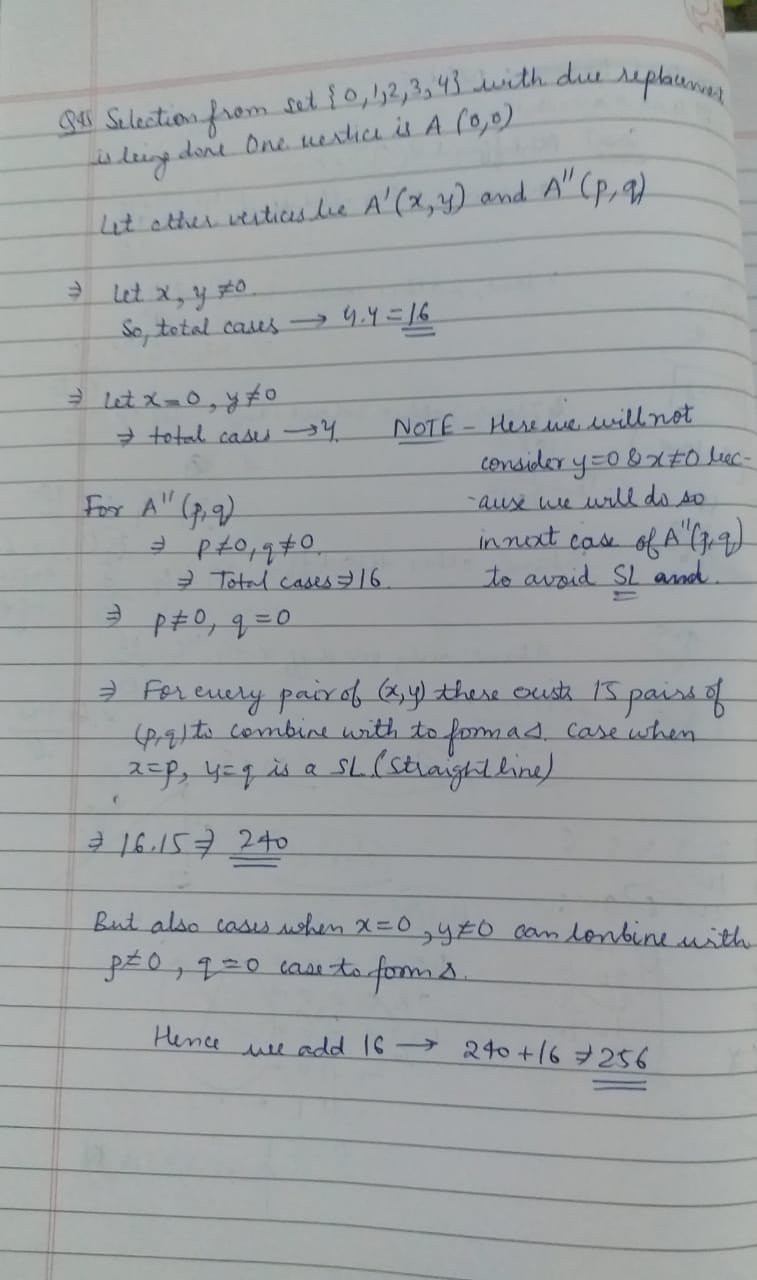 Q45 Selection from set {0,1,2,3,4} with due replacement
is being done One vertice is A (0,0)
Let other vertices be A'(x,y) and A"(p,q)
⇒ Let x, y ≠0.
So, total cases → 4.4 = 16
⇒ Let x=0, y≠0
⇒ total cases → 4.
NOTE - Here we will not
consider y=0 & x≠0 bec-
-ause we will do so
in next case of A"(p,q)
to avoid SL and.
For A"(p,q)
⇒ p≠0, q≠0.
⇒ Total cases ⇒ 16.
⇒ p≠0, q=0
⇒ For every pair of (x,y) there exists 15 pairs of
(p,q) to combine with to form a Δ. case when
x=p, y=q is a SL (straight line)
⇒ 16.15 ⇒ 240
But also cases when x=0, y≠0 can conbine with
p≠0, q=0 case to form Δ.
Hence we add 16 → 240+16 ⇒ 256